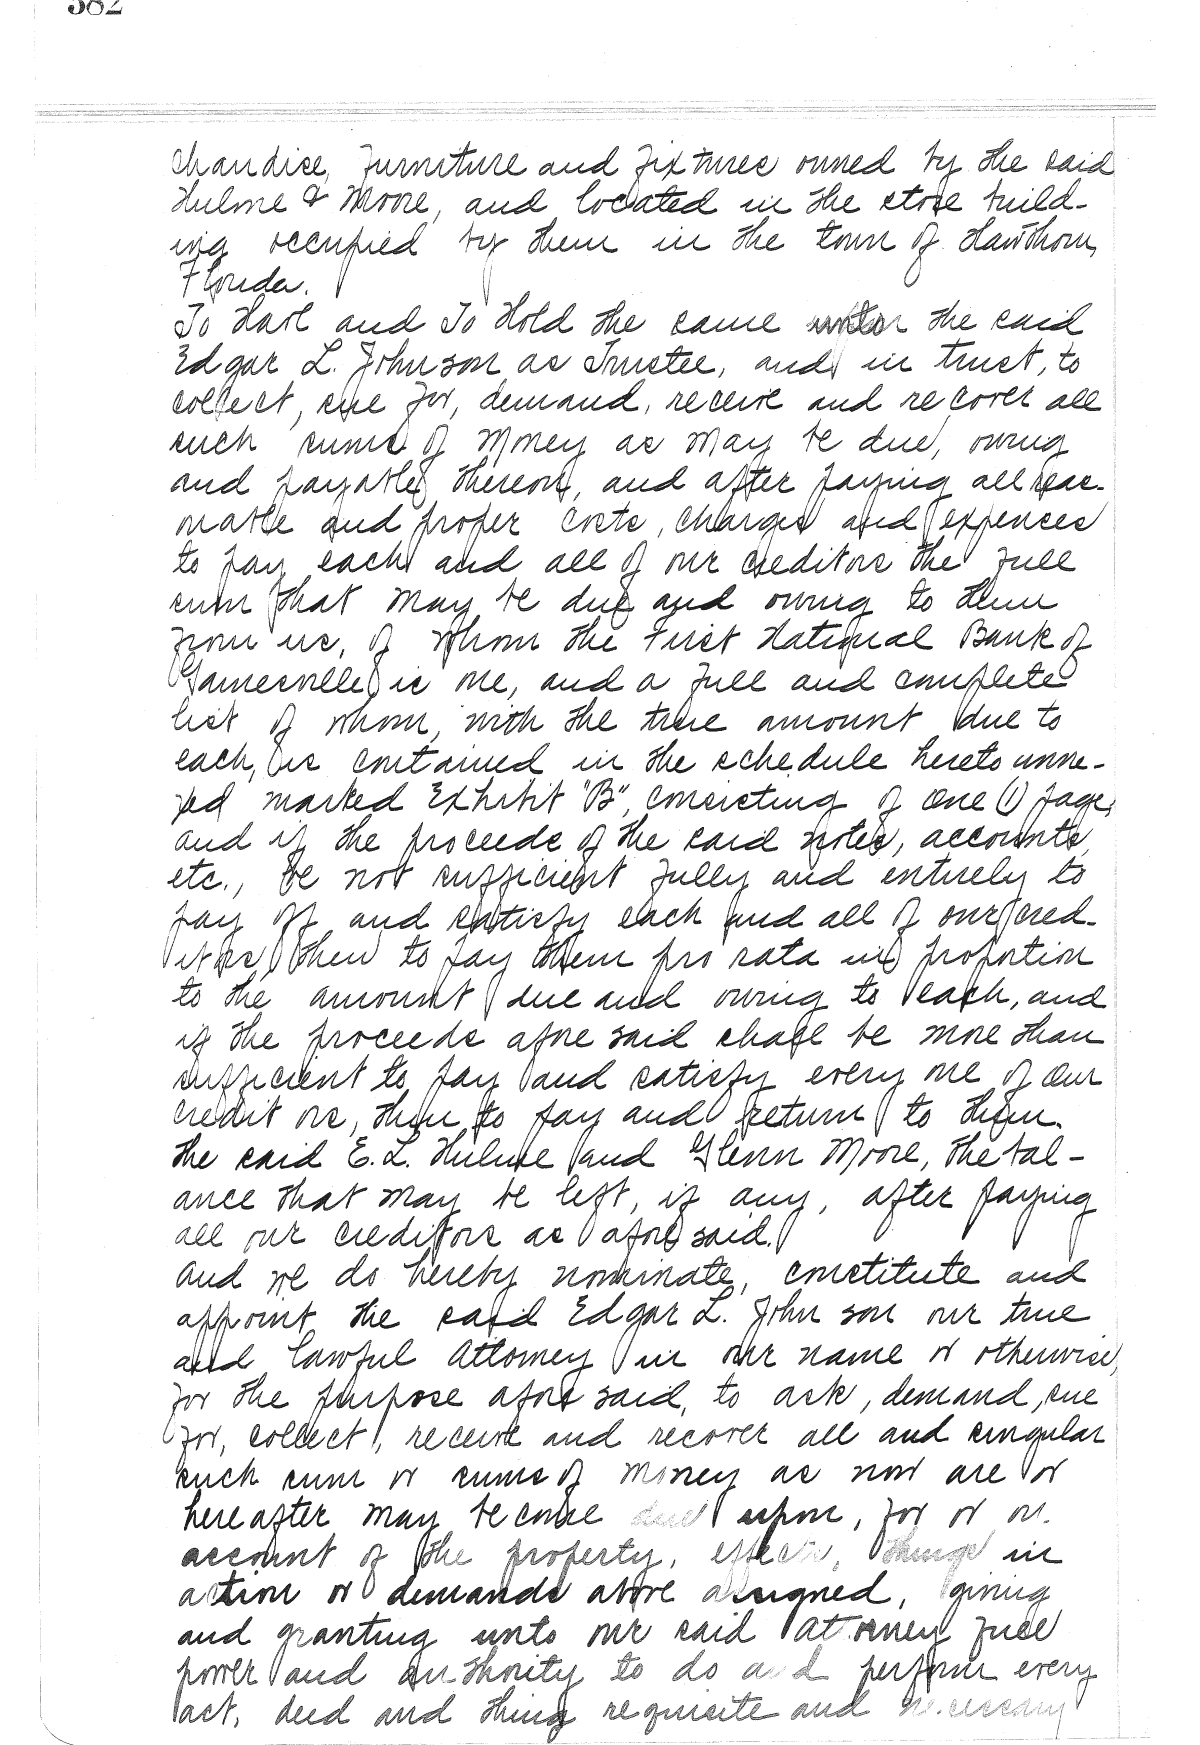 382
chandise, Furniture and Fixtures owned by the said
Hulme & Moore, and located in the store build-
ing occupied by them in the town of Hawthorn,
Florida.
To Have and To Hold the same unto the said
Edgar L. Johnson as Trustee, and in trust, to
collect, sue for, demand, receive and recover all
such sums of money as may be due, owing
and payable thereon, and after paying all reas-
onable and proper costs, charges and expences
to pay each and all of our creditors the full
sum that may be due and owing to them
from us, of whom the First National Bank of
Gainesville is one, and a full and complete
list of whom, with the true amount due to
each, is contained in the schedule hereto anne-
xed marked Exhibit "B", consisting of one (1) page,
and if the proceeds of the said notes, accounts
etc., be not sufficient fully and entirely to
pay off and satisfy each and all of our cred-
itors, then to pay them pro rata in proportion
to the amount due and owing to each, and
if the proceeds afore said shall be more than
sufficient to pay and satisfy every one of our
creditors, then to pay and return to them
the said E. L. Hulme and Glenn Moore, the bal-
ance that may be left, if any, after paying
all our creditors as afore said.
And we do hereby nominate, constitute and
appoint the said Edgar L. Johnson our true
and lawful Attorney in our name or otherwise,
for the purpose afore said, to ask, demand, sue
for, collect, receive and recover all and singular
such sum or sums of money as now are or
hereafter may become due upon, for or on
account of the property, effects, things in
action or demands above assigned, giving
and granting unto our said Attorney full
power and authority to do and perform every
act, deed and thing requisite and necessary